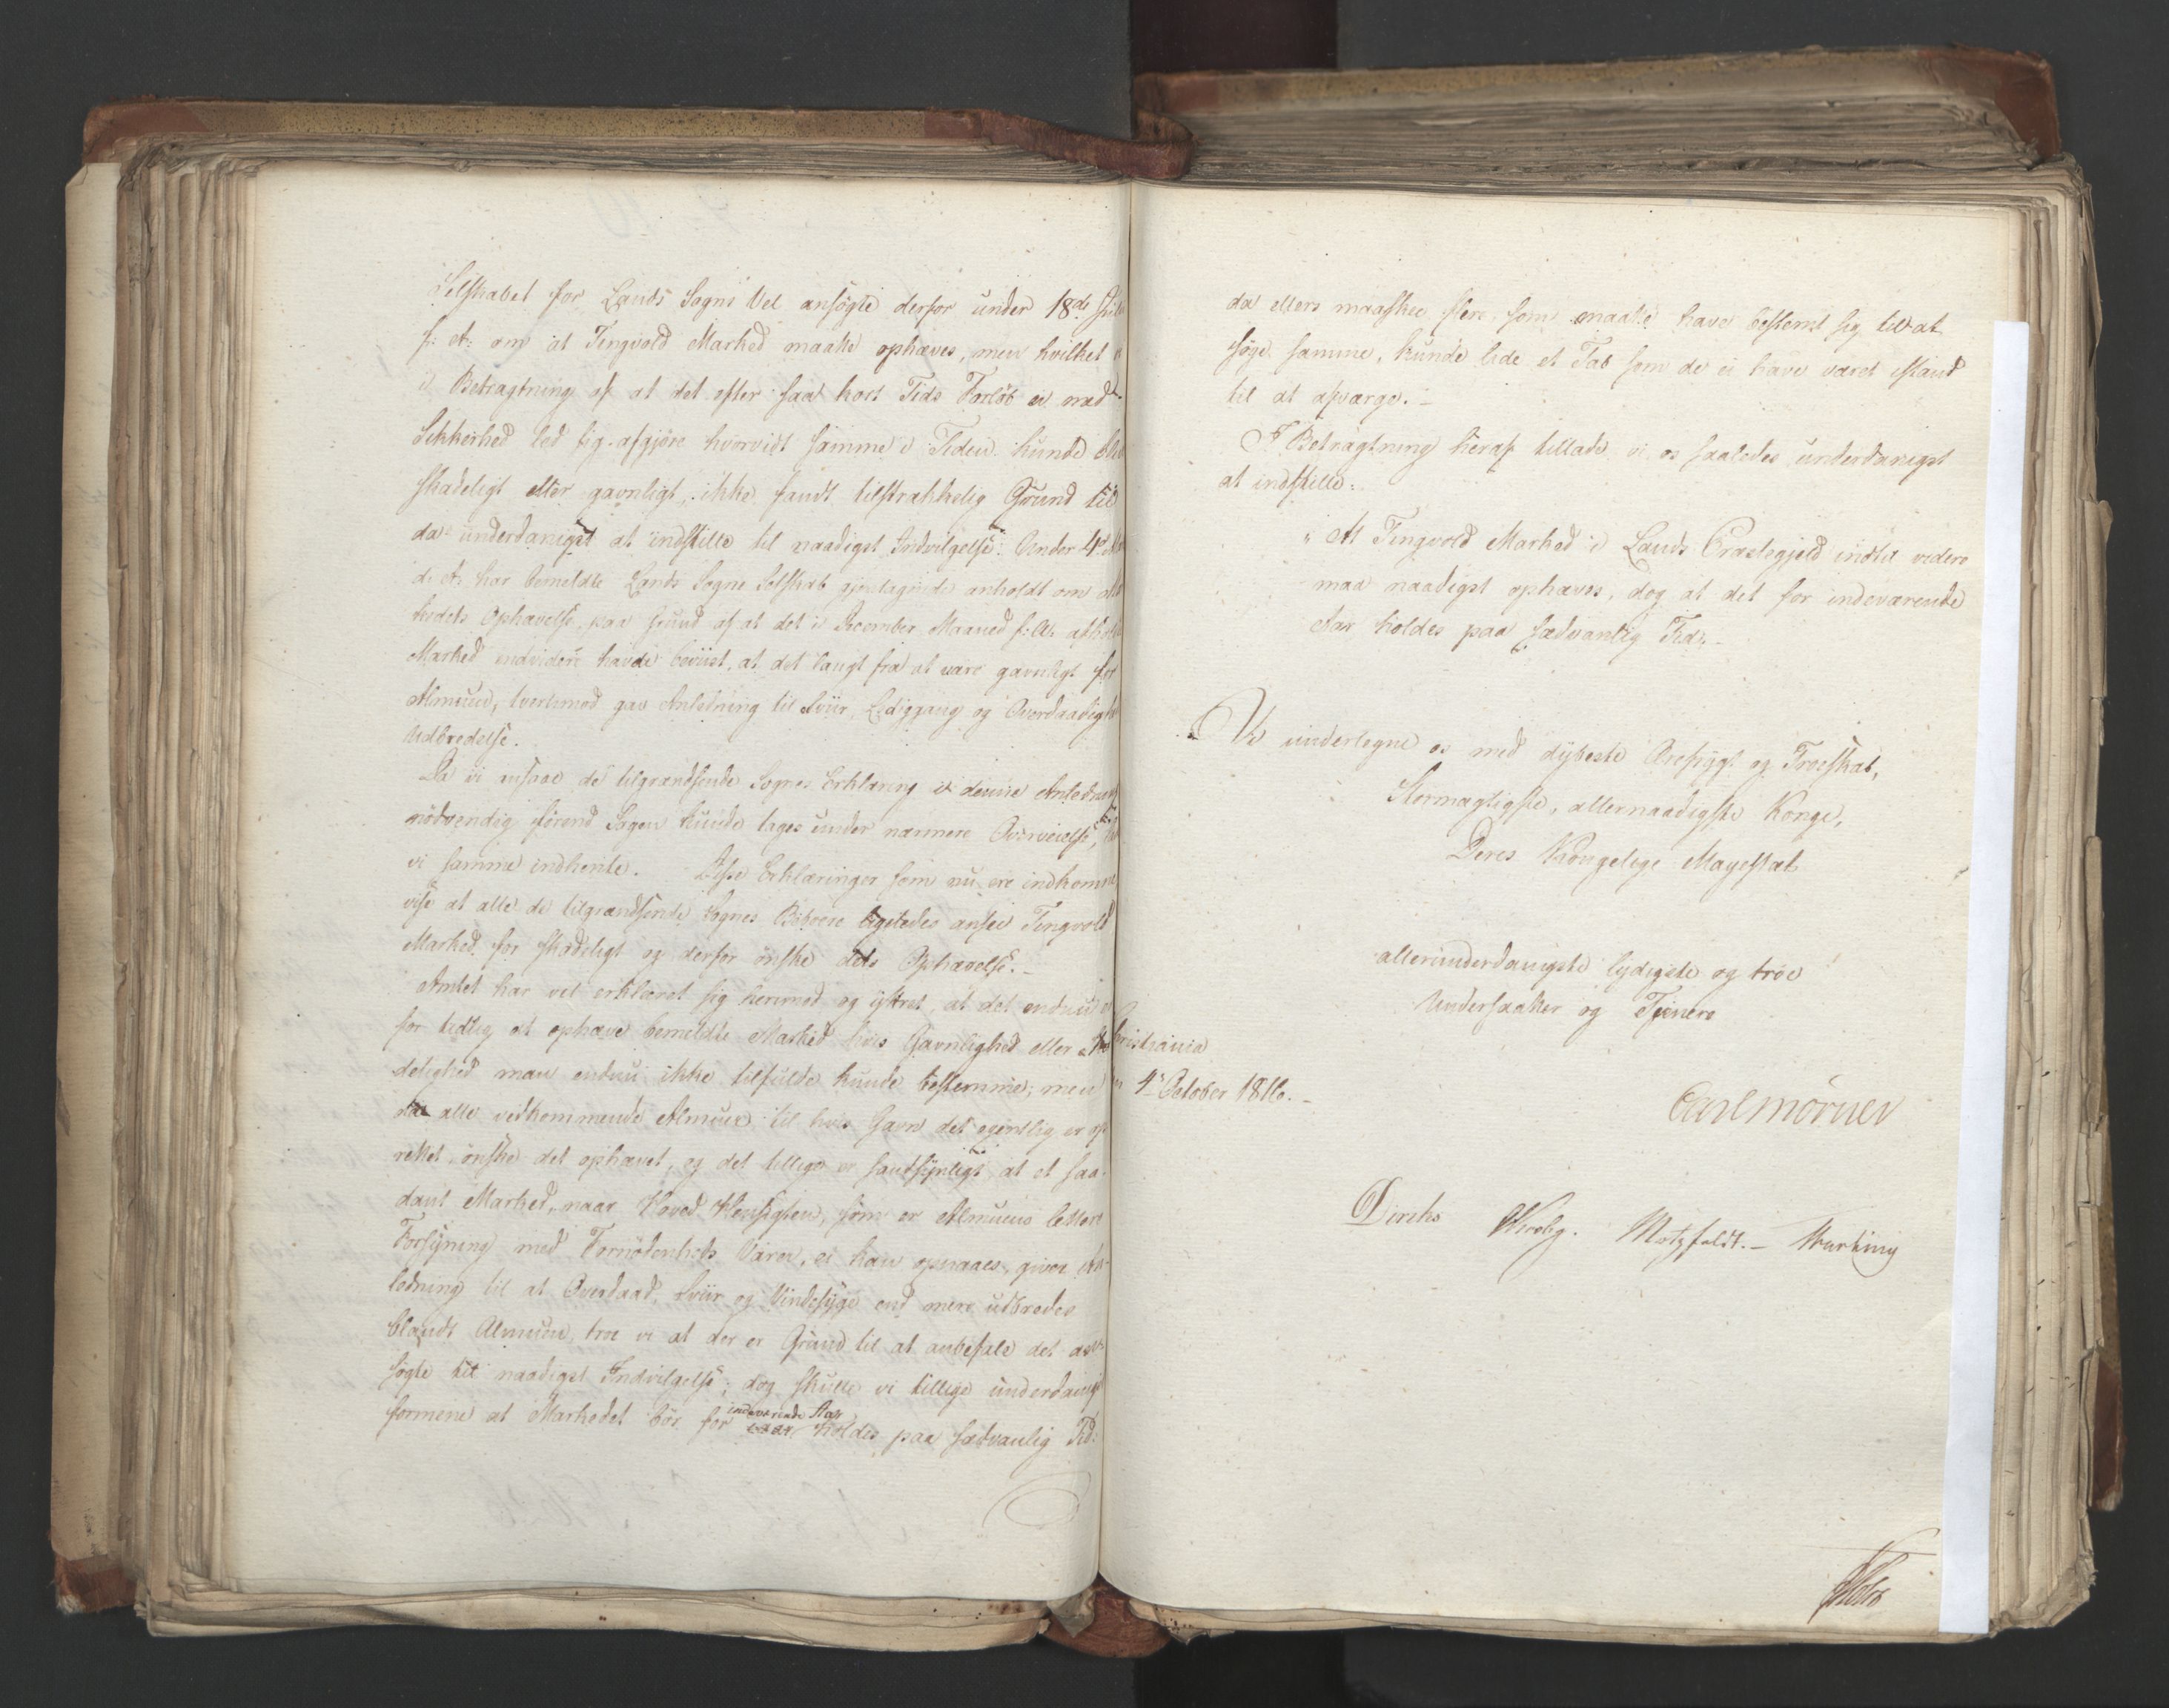 Selskabet for Lands Sogns Vel ansøgte derfor under 18de
f: A: om at Tingvold Marked maatte ophæves, men hvilket
i Betragtning af at det efter saa kort Tids Forløb ei med
Sikkerhed lod sig afgjøre hvorvidt samme i Tiden kunde
skadeligt eller gavnligt, ikke fandt tilstrækkelig Grund til
da underdanigst at indstille til naadigst Indvilgelse. Under 4de
d: A: har bemeldte Lands Sogne Selskab gjentagende anholdt om
kedets Ophævelse, paa Grund af at det i December Maaned f: A:
Marked endvidere havde beviist, at det langt fra at være gavnligt for
Almuen, tvertimod gav Anledning til Sviir, Lediggang og
Udbredelse.
Da vi ansaae de tilgrændsende Sognes Erklæring i denne
nødvendig førend Sagen kunde tages under nærmere Overveielse,
vi samme indhente. Disse Erklæringer som nu ere indkomne
vise at alle de tilgrændsende Sognes Beboere ligeledes ansee Tingvold
Marked for skadeligt og derfor ønske dets Ophævelse. –
Amtet har vel erklæret sig herimod og yttret, at det endnu er
for tidlig at ophæve bemeldte Marked hvis Gavnlighed eller Ska-
delighed man endnu ikke tilfulde kunde bestemme; men
da alle vedkommende Almuer til hvis Gavn det egentlig er op-
rettet, ønske det ophævet, og det tillige er sandsynligt at et saa-
dant Marked, naar Hoved Hensigten, som er Almuens lettere
Forsyning med Fornødenheds Varer, ei kan opnaaes, giver An-
ledning til at Overdaad, Sviir og Vindesyge end mere udbredes
blandt Almuen, troe vi at der er Grund til at anbefale det an-
søgte til naadigst Indvilgelse; dog skulle vi tillige underdanigst
indeværende Aar
formene at Markedet bør for holdes paa sædvanlig Tid:
da ellers maaskee flere, som maatte have bestemt sig til at
søge samme, kunde lide et Tab som de ei have været istand
til at afværge. –
I Betragtning heraf tillade vi os saaledes underdanigst
at indstille:
"At Tingvold Marked i Lands Præstegjeld indtil videre
maa naadigst ophæves, dog at det for indeværende
Aar holdes paa sædvanlig Tid. –
Vi undertegne os med dybeste Ærefrygt og Troeskab,
Stormægtigste, allernaadigste Konge,
Deres Kongelige Mayestæt
allerunderdanigste lydigste og troe
Undersaatter og Tjenere
Christiania
4de October 1816. –
Carl Mörner
Diriks Krebs. Motzfeldt. –